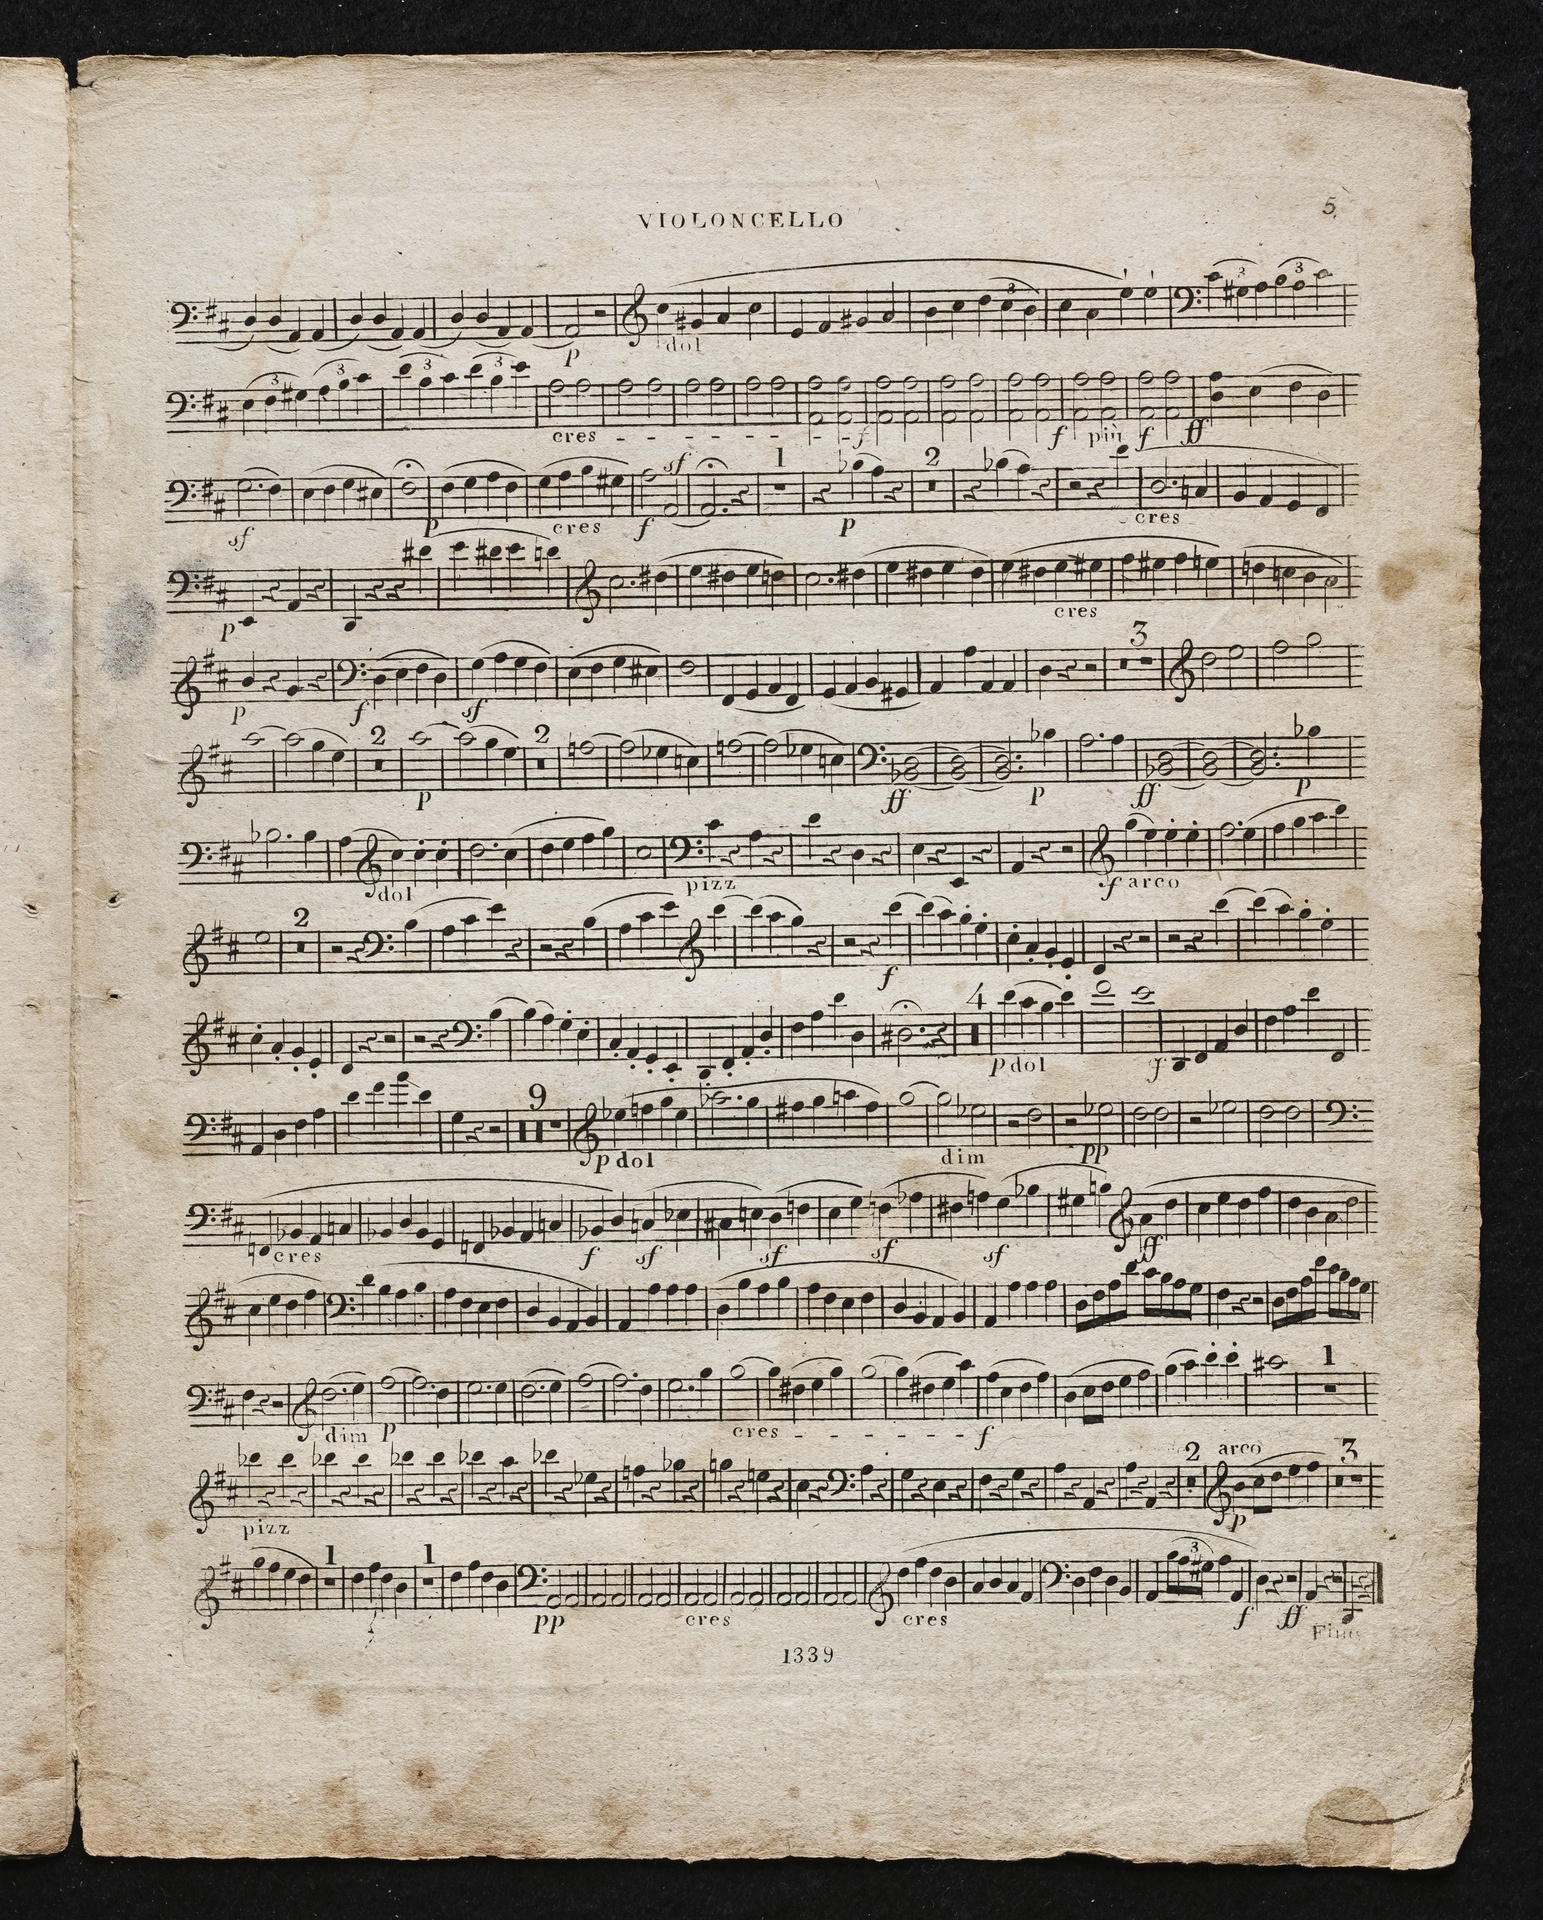 VIOLONCELLO
5
3 3 3
p dol
3 3 3 3
cres f f più f ff
sf 1 2
sf p cres f p cres
p cres
3
p f sf
2 2
p ff p ff p
dol pizz f arco
2
f
4
p dol f
9
p dol dim pp
cres f sf sf sf sf ff
1
dim p cres f
2 arco 3
pizz p
1 1 3
pp cres cres f ff
1339